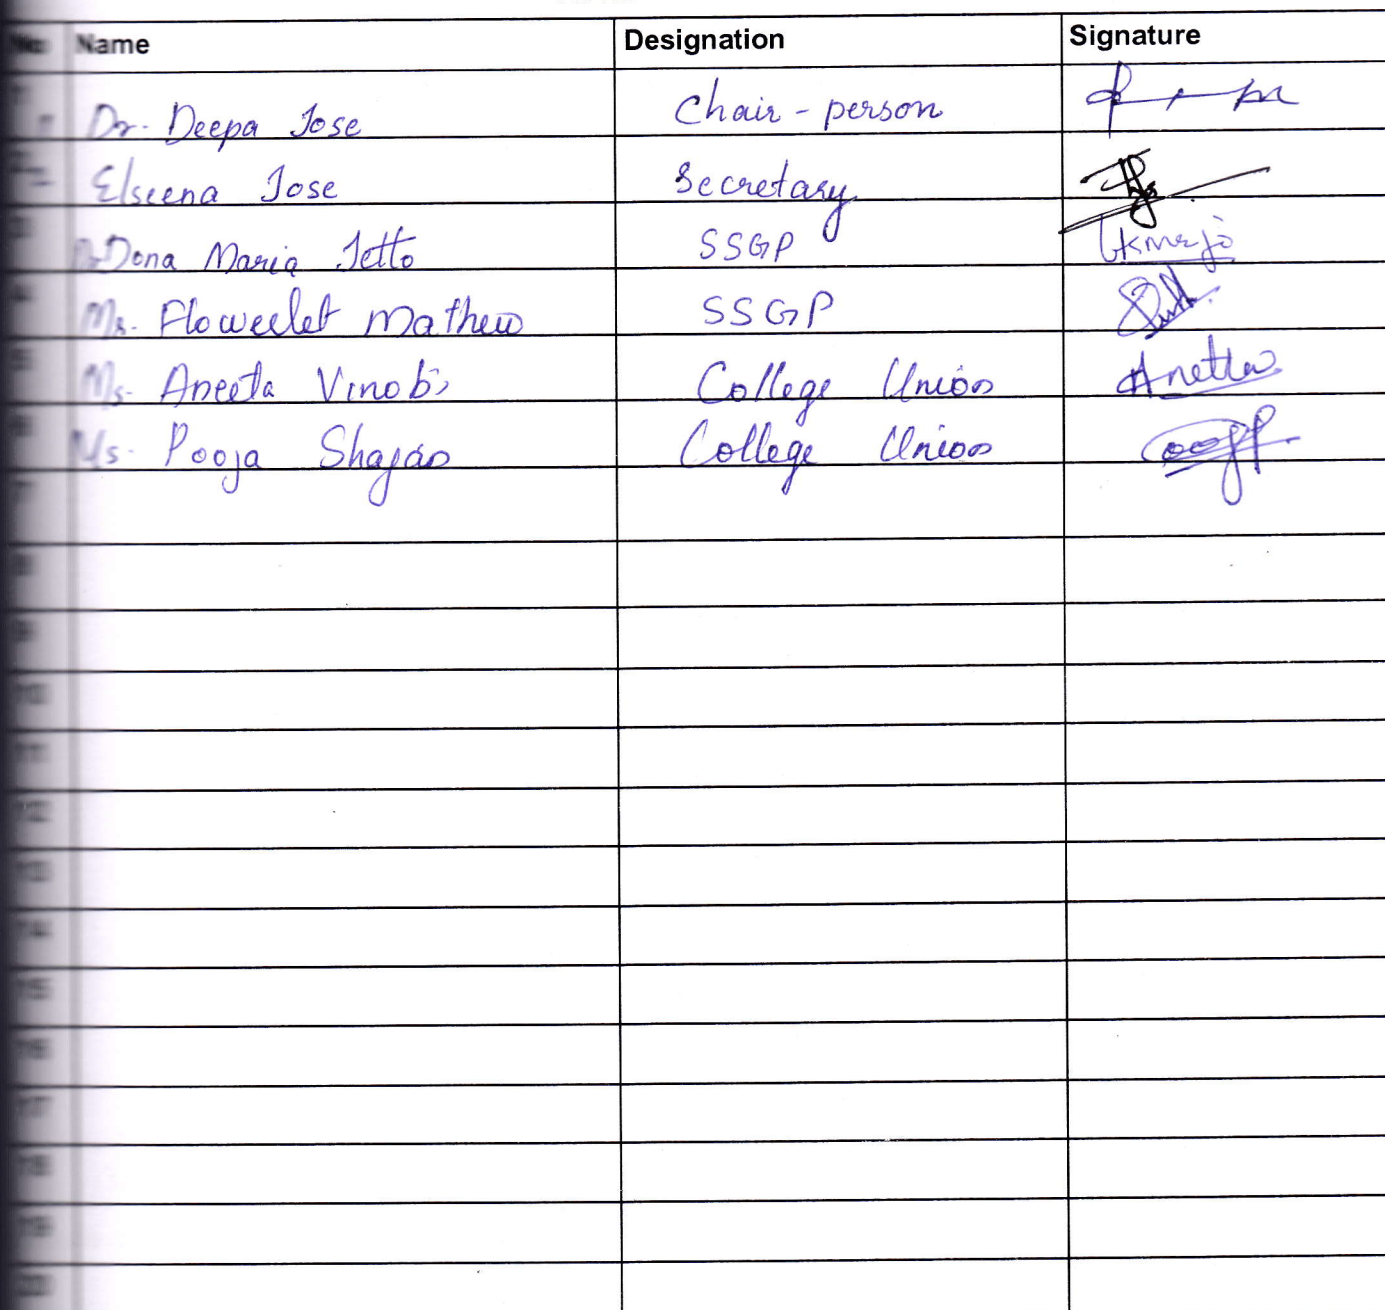 No Name Designation Signature
1 Dr. Deepa Jose Chair-person
2 Elseena Jose Secretary
3 Dr Dona Maria Jetto SSGP
4 Ms. Flowerlet Mathew SSGP
5 Ms. Aneeta Vinobi College Union Anetta
6 Ms. Pooja Shajan College Union
7
8
9
10
11
12
13
14
15
16
17
18
19
20